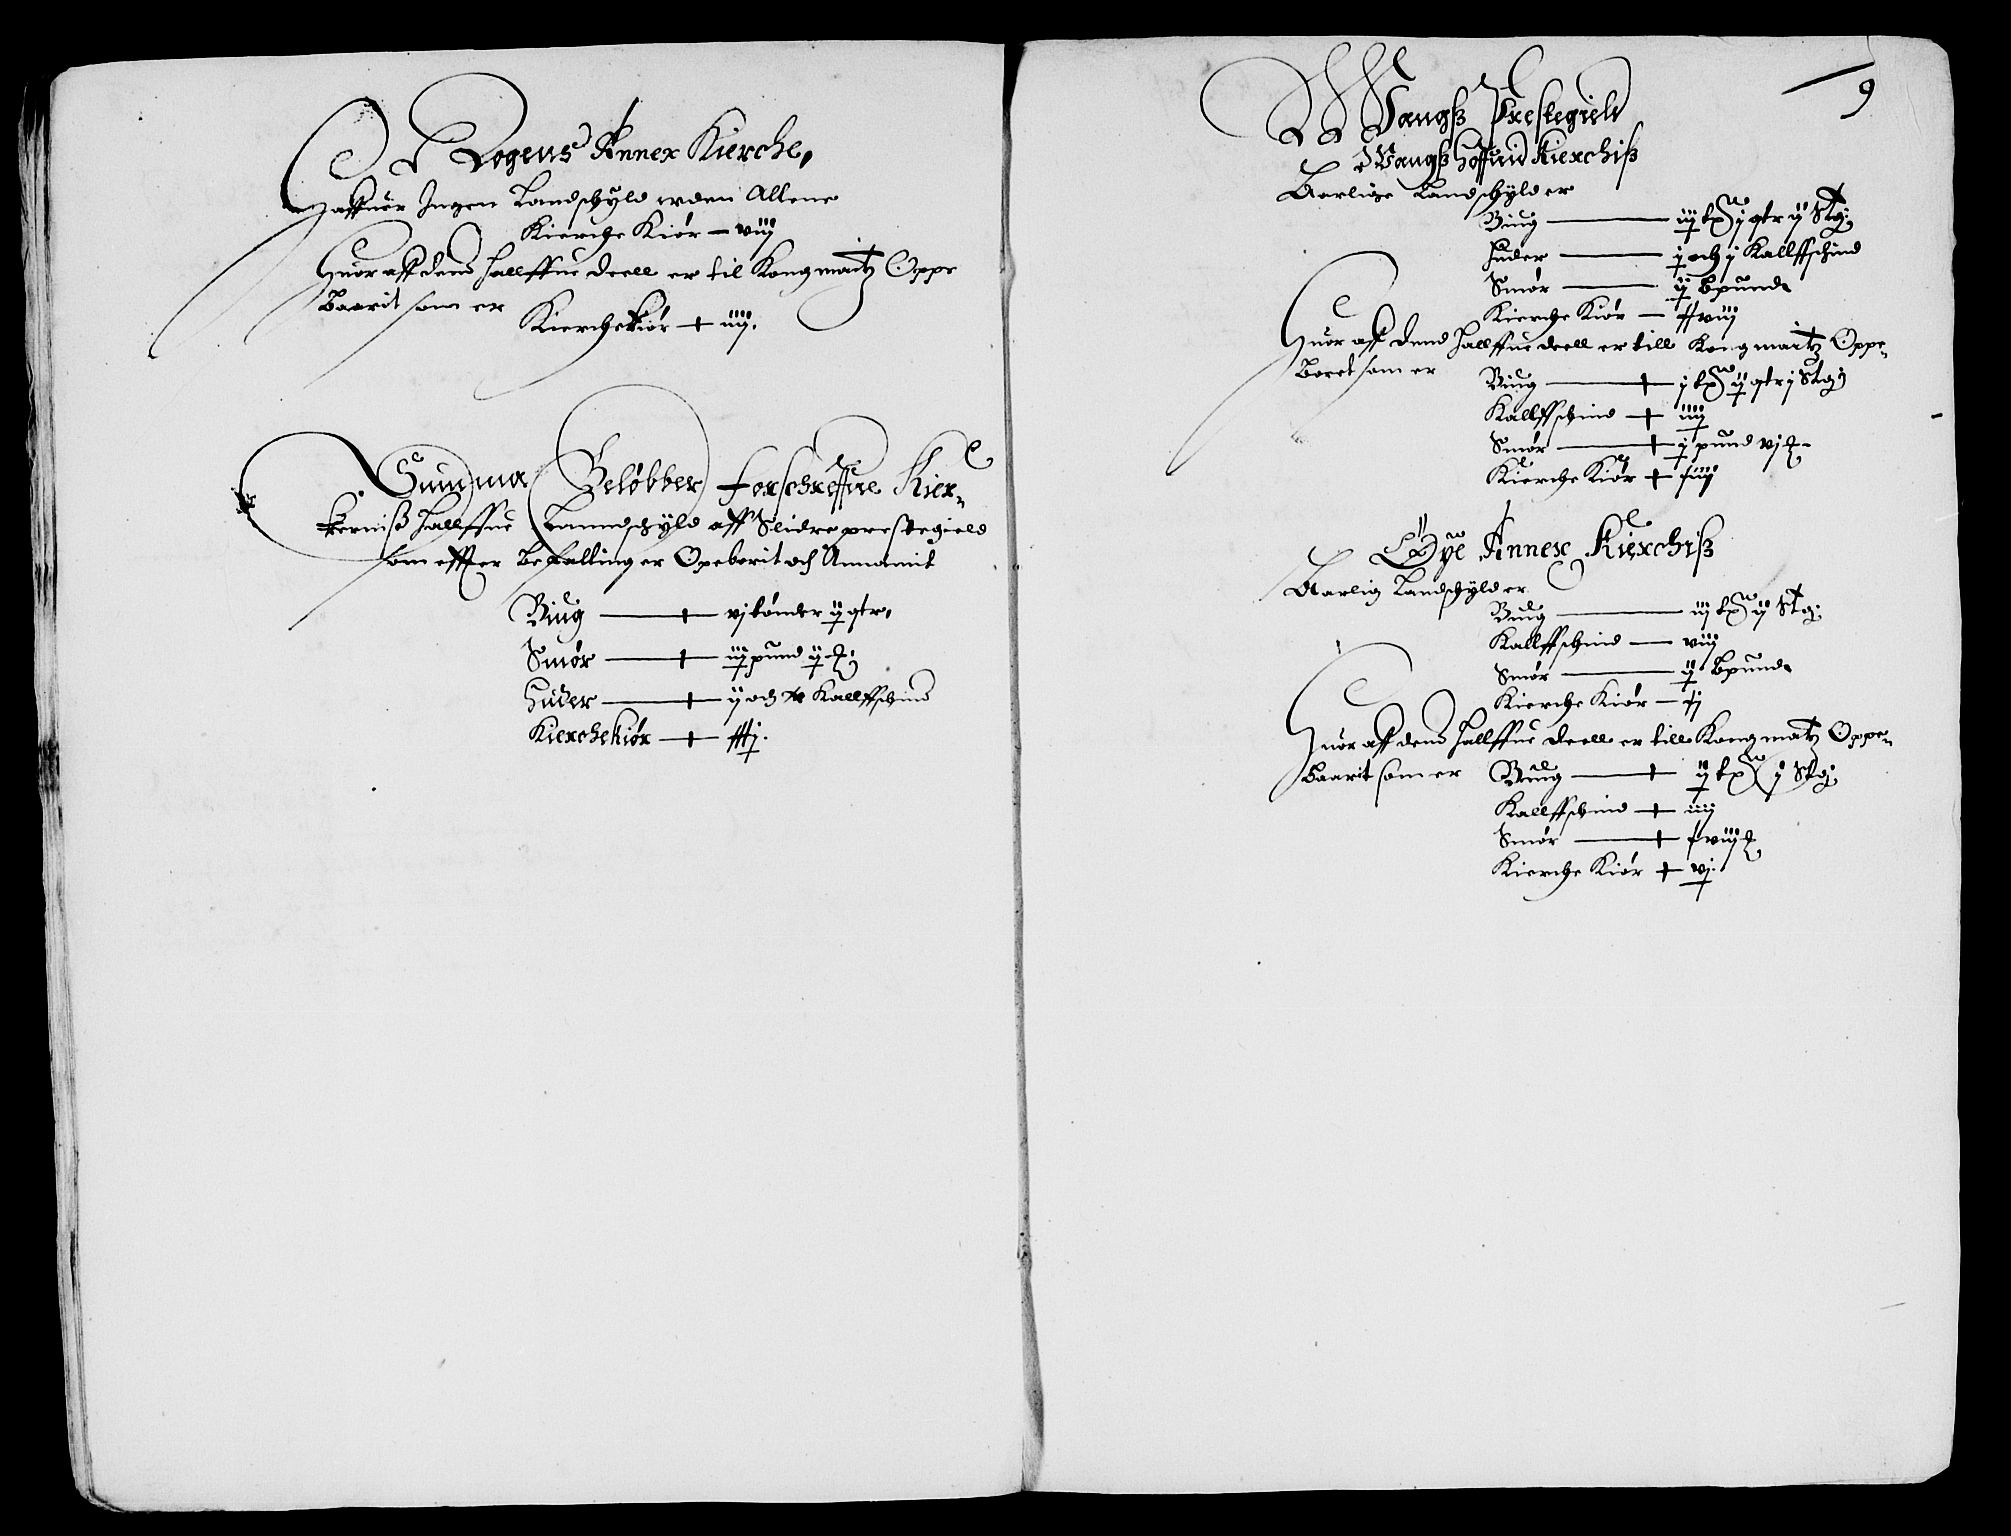 Rogens Annex Kierche,
Haffuer Ingen Landschyld uden Allene
Kierche Kiør — viij
Huor aff dend halffue deell er til Kong maitz Oppe
Baarit som er
Kierchekiør + iiij.
Summa Beløbber forschreffne Kier-
kerniß halffue Lanndschyld aff Slidre prestegield
som effter befalling er Opeborit och Annamit
Biug — + vj tønder ij qtr,
Smør — + iij pund ij
Huder — + ij och x Kallffschind
Kierchekiør — +
9
Vangß Prestegield
Vangß Hoffuid Kierchiß
Aarlige Landschyld er
Biug — iij tø j qtr ij Stj
Huder — j och j Kallffschind
Smør — ij Bpund
Kierche Kiør — xxviij
Huor aff dend halffue deell er till Kong maitz Oppe-
Boret som er
Biug — + j tø ij qtr j Stj
Kallffschind + iiij
Smør — + j pund vj
Kierche Kiør + xiiij
Øye Annex Kierchiß
Aarlig Landschyld er
Biug — iij tø ij Stj
Kallffschind — viij
Smør — ij Bpund
Kierche Kiør — xj
Huor aff dend halffue deell er till Kong maitz Oppe-
baarit som er
Biug — + ij tø j Stj
Kallffschind + iiij
Smør — + xviij
Kierche Kiør + vj.